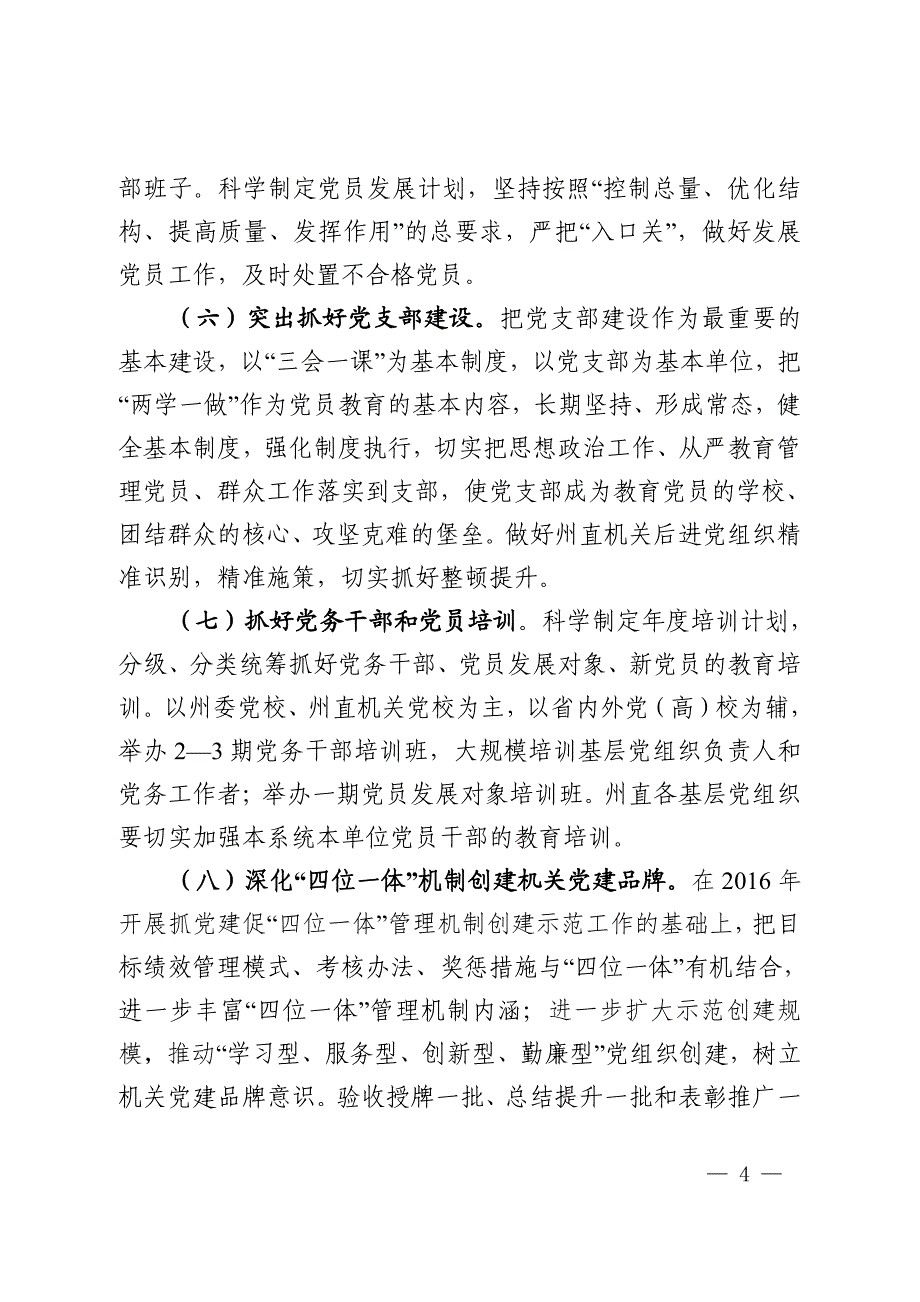 部班子。科学制定党员发展计划，坚持按照“控制总量、优化结
构、提高质量、发挥作用”的总要求，严把“入口关”，做好发展
党员工作，及时处置不合格党员。
（六）突出抓好党支部建设。把党支部建设作为最重要的
基本建设，以“三会一课”为基本制度，以党支部为基本单位，把
“两学一做”作为党员教育的基本内容，长期坚持、形成常态，健
全基本制度，强化制度执行，切实把思想政治工作、从严教育管
理党员、群众工作落实到支部，使党支部成为教育党员的学校、
团结群众的核心、攻坚克难的堡垒。做好州直机关后进党组织精
准识别，精准施策，切实抓好整顿提升。
（七）抓好党务干部和党员培训。科学制定年度培训计划，
分级、分类统筹抓好党务干部、党员发展对象、新党员的教育培
训。以州委党校、州直机关党校为主，以省内外党（高）校为辅，
举办2—3期党务干部培训班，大规模培训基层党组织负责人和
党务工作者；举办一期党员发展对象培训班。州直各基层党组织
要切实加强本系统本单位党员干部的教育培训。
（八）深化“四位一体”机制创建机关党建品牌。在2016年
开展抓党建促“四位一体”管理机制创建示范工作的基础上，把目
标绩效管理模式、考核办法、奖惩措施与“四位一体”有机结合，
进一步丰富“四位一体”管理机制内涵；进一步扩大示范创建规
模，推动“学习型、服务型、创新型、勤廉型”党组织创建，树立
机关党建品牌意识。验收授牌一批、总结提升一批和表彰推广一
— 4 —